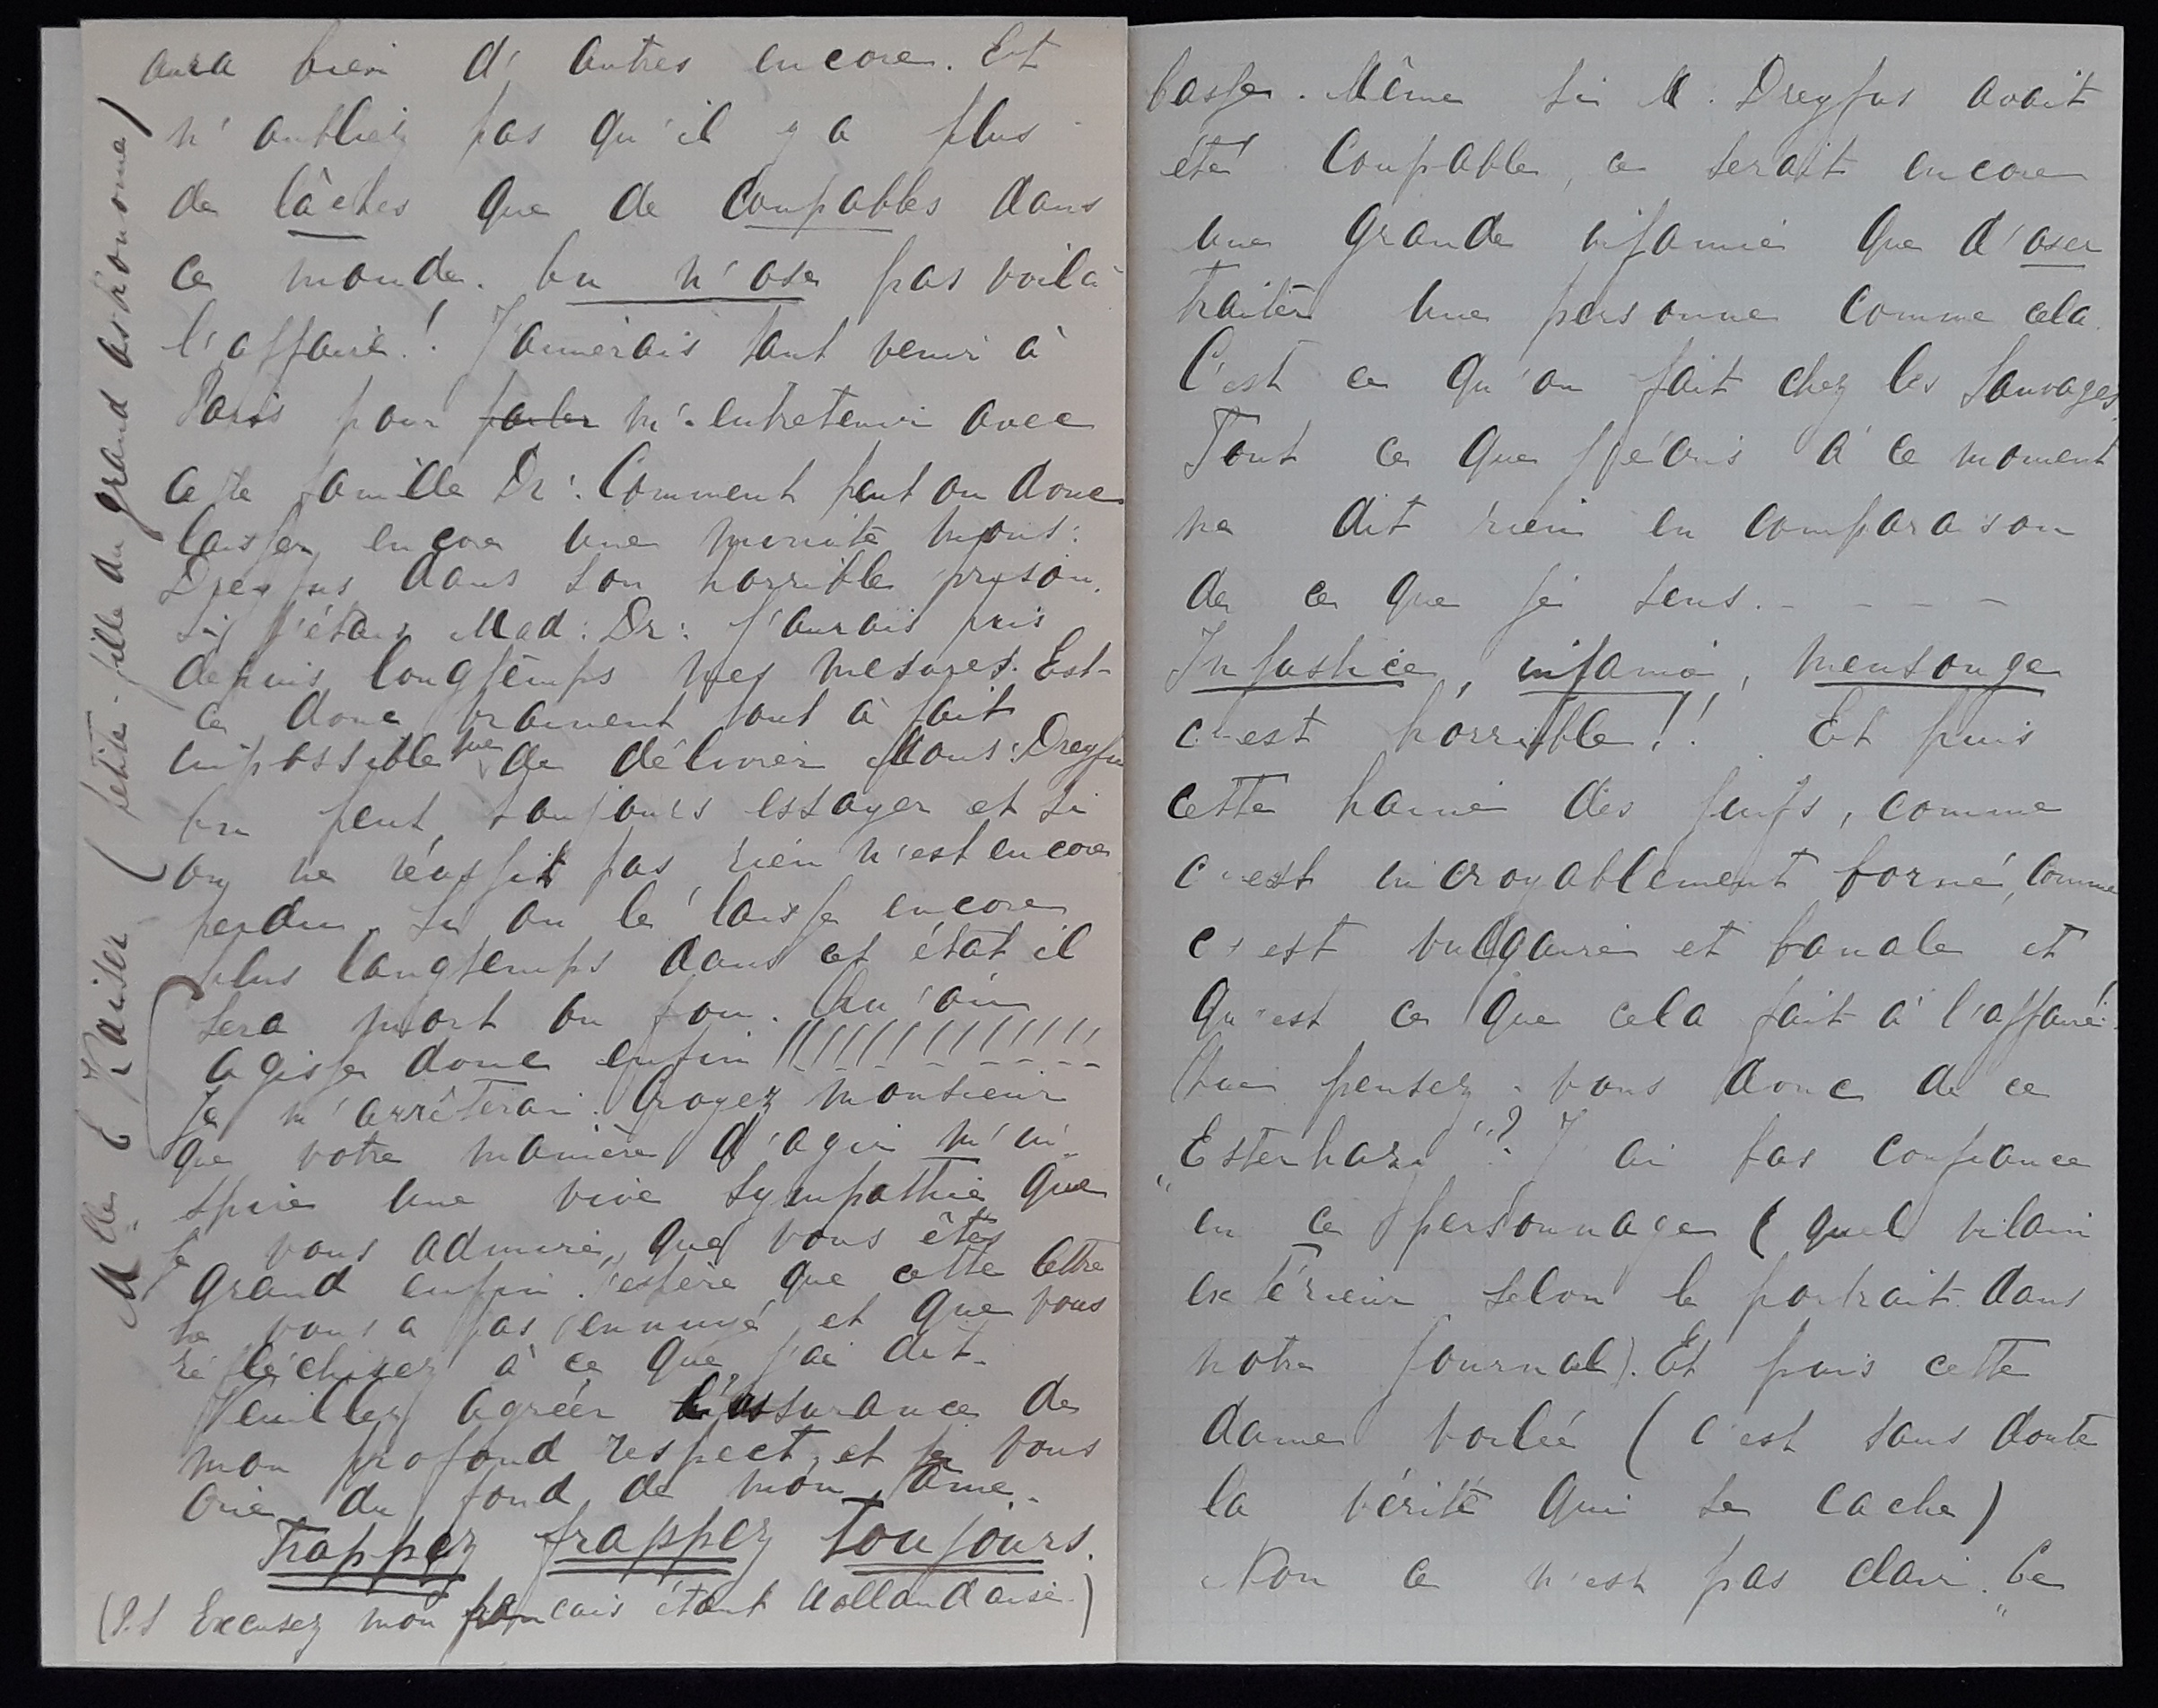 aura bien d'autres encore. Et
n'oubliez pas qu'il y a plus
de lâches que de coupables dans
ce monde. On n'ose pas voilà
l'affaire! J'aimerais tant venir à
Paris pour parler m'entretenir avec
cette famille Dr: Comment peut on donc
laisser encore une minute Mons:
Dreyfus dans son horrible prison.
Si j'étais Mad: Dr: j'aurais pris
depuis longtemps mes mesures. Est-
ce donc vraiment tout à fait
impossible que de délivrer Mons: Dreyfus
On peut toujours essayer et si
on ne réussit pas rien n'est encore
perdu. Si on le laisse encore
plus longtemps dans cet état il
sera mort ou fou. Qu'on
agisse donc enfin !!!!!!!!!!!!!!
Je m'arrêterai. Croyez monsieur
que votre manière d'agir m'in-
spire une vive sympathie que
je vous admire, que vous êtes
grand enfin j'espère que cette lettre
ne vous a pas ennuyé et que vous
réfléchisez à ce que j'ai dit.
Veuillez agréer l'assurance de
mon profond respect, et je vous
crie du fond de mon âme.
Frappez frappez toujours.
(P.S Excusez mon français étant hollandaise.)
Mlle E Kaiser (petite-fille du grand astronome)
basse. Même si M. Dreyfus avait
été coupable, ce serait encore
une grande infamie que d'oser
traiter une personne comme cela.
C'est ce qu'on fait chez les sauvages.
Tout ce que j'écris à ce moment
ne dit rien en comparaison
de ce que je sens. - - - -
Injustice, infamie, mensonge
c'est horrible!! Et puis
cette haine des juifs, comme
c'est incroyablement borné, comme
c'est vulgaire et banale et
qu'est ce que cela fait à l'affaire!
Que pensez-vous donc de ce
„Esterhazy"? J'ai pas confiance
en ce personnage (quel vilain
extérieur selon le portrait dans
notre journal). Et puis cette
dame voilée (c'est sans doute
la vérité qui se cache)
Non ce n'est pas clair. Ce